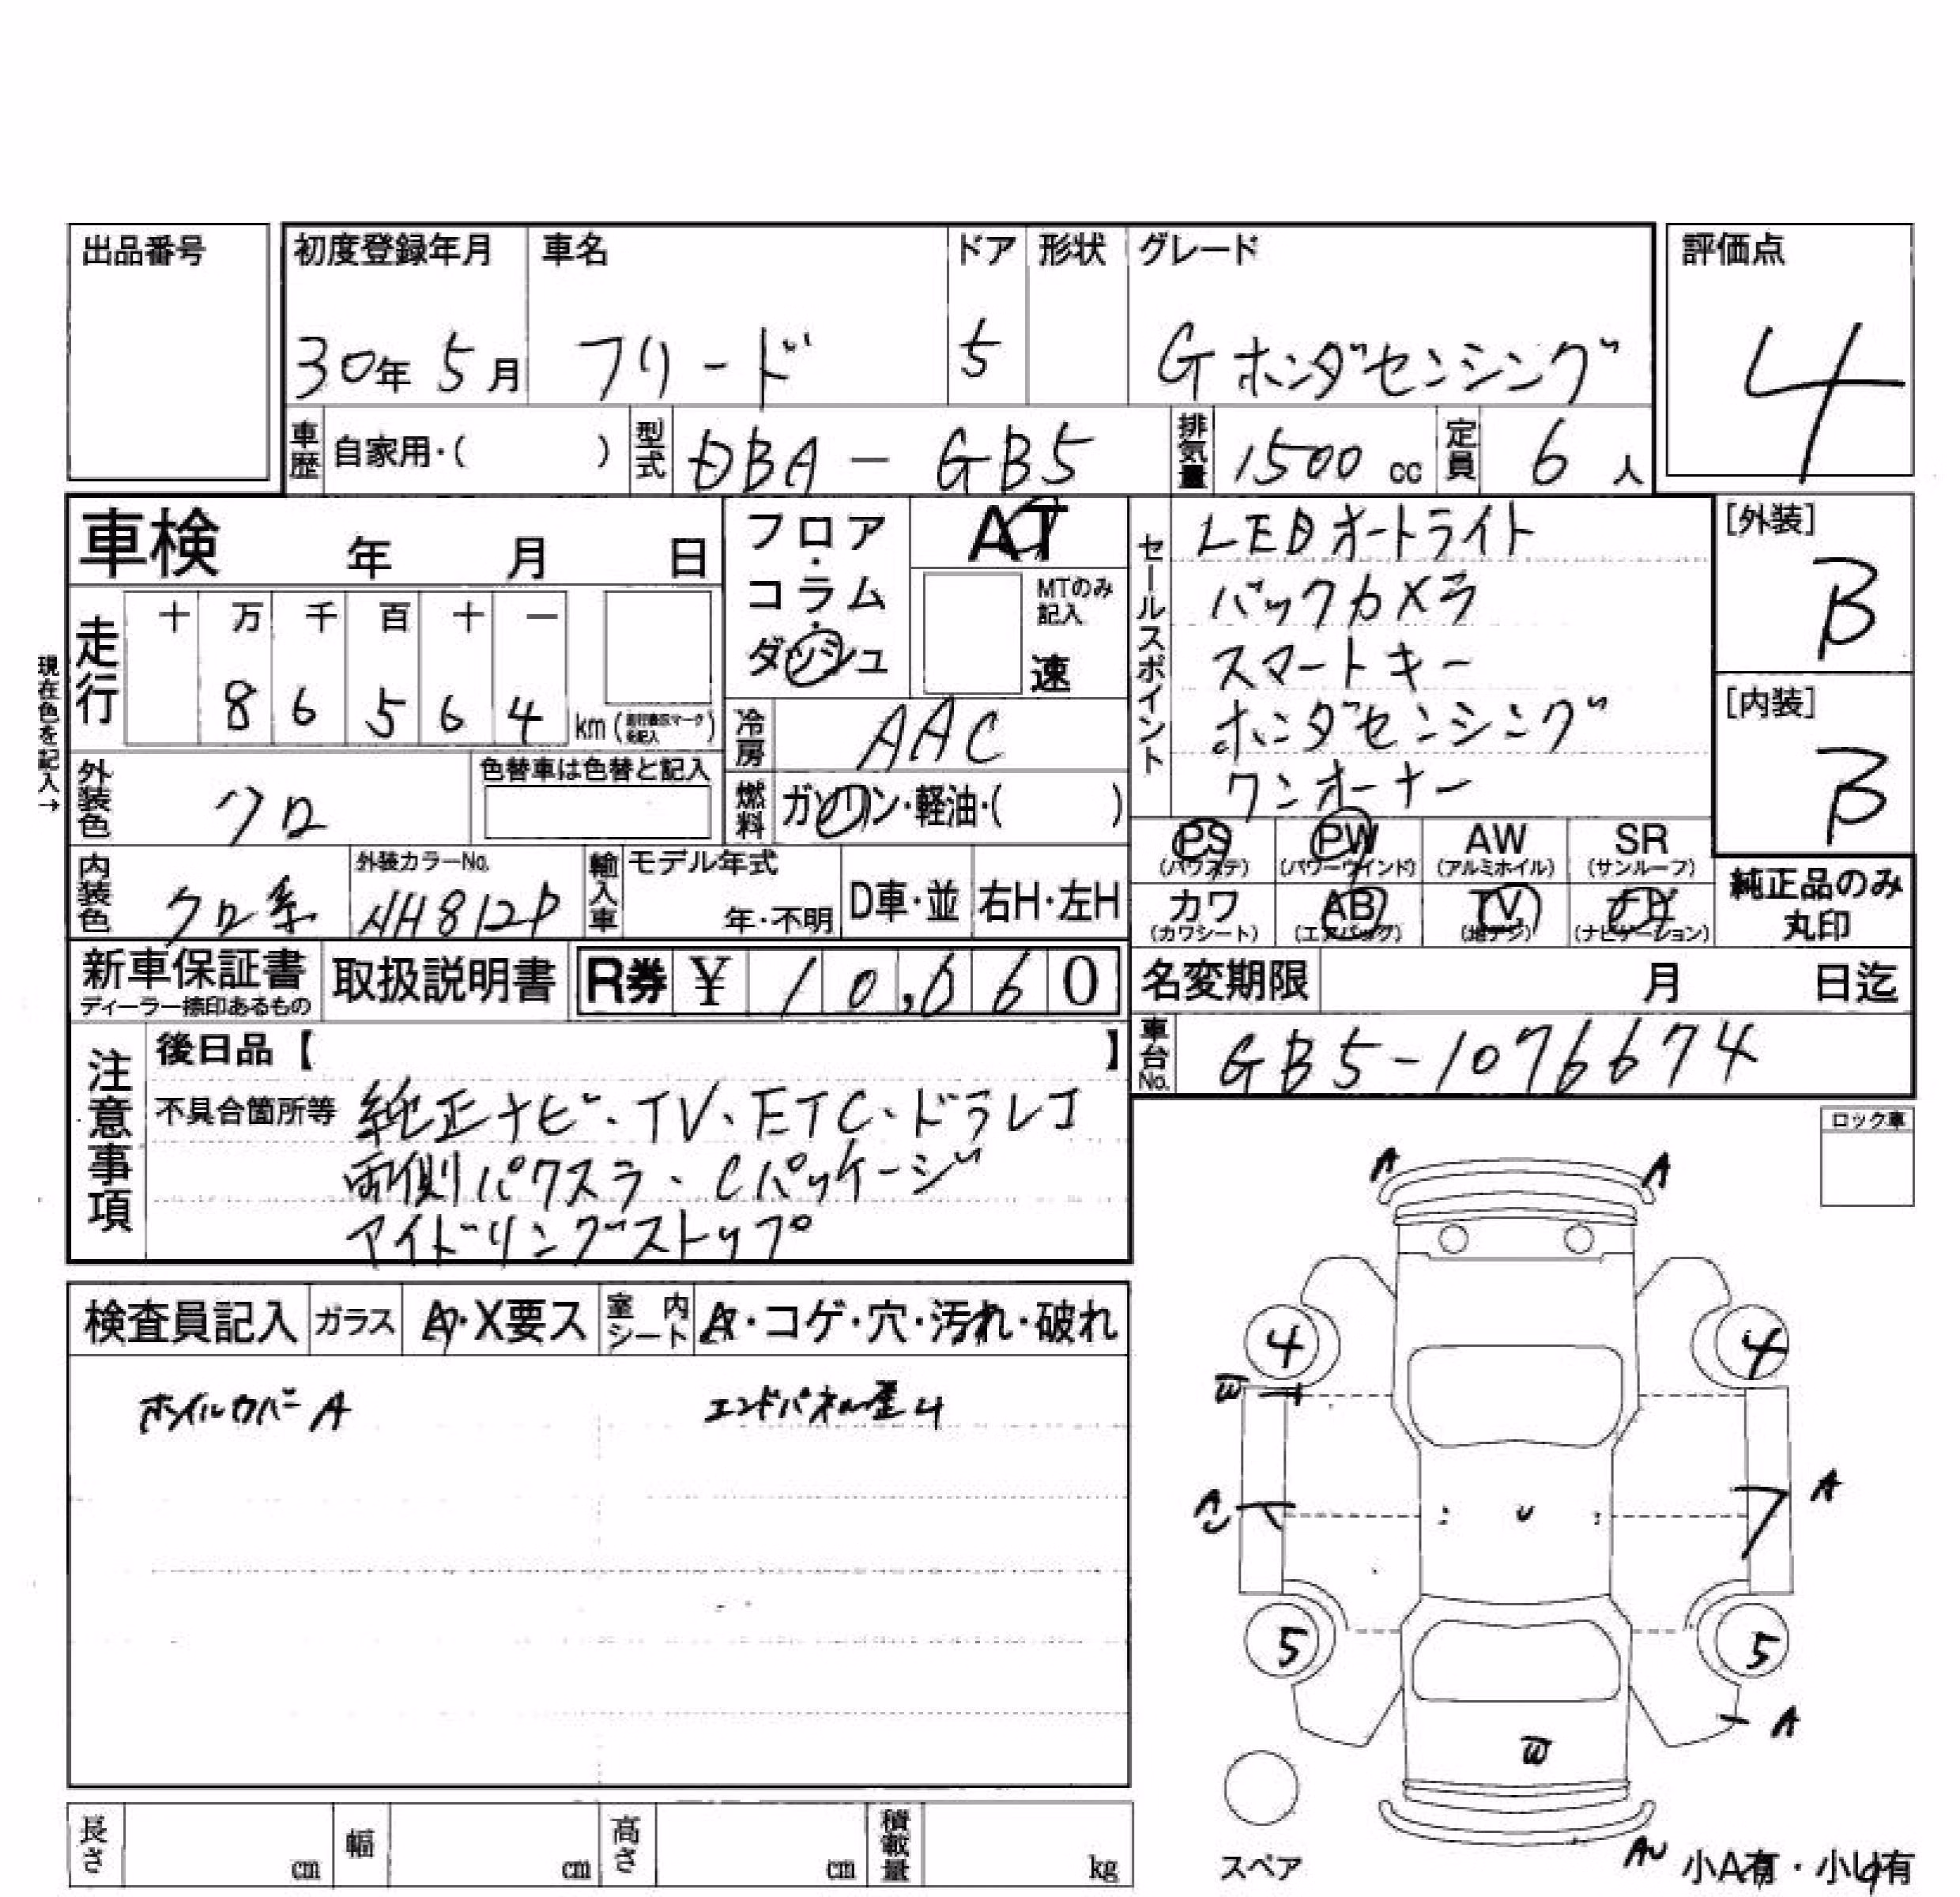 出品番号
初度登録年月 車名 ドア 形状 グレード
評価点
30年 5月 フリード 5 Gホンダセンシング
4
車歴 自家用・( ) 型式 DBA-GB5 排気量 1500 cc 定員 6 人
車検 年 月 日
フロア・コラム・ダッシュ
AT
MTのみ記入
速
セールスポイント
LEDオートライト
バックカメラ
スマートキー
ホンダセンシング
ワンオーナー
[外装]
B
[内装]
B
現在色を記入→
走行 十 万 千 百 十 一
8 6 5 6 4 km( )
冷房 AAC
外装色 クロ
色替車は色替と記入
燃料 ガソリン・軽油・( )
PS AB PW AW SR
(パワステ) (パワーウインド) (アルミホイル) (サンルーフ)
内装色 クロ系 外装カラーNo. NH812P 輸入車 モデル年式 年・不明 D車・並 右H・左H
カワ AB TV
(カワシート) (エアバッグ) (地デジ) (ナビゲーション)
純正品のみ丸印
新車保証書 取扱説明書 R券 ¥ 10,660
ディーラー捺印あるもの
名変期限 月 日迄
車台No. GB5-1076674
注意事項
後日品【 】
不具合箇所等 純正ナビ・TV・ETC・ドラレコ
両側パワスラ・Cパッケージ
アイドリングストップ
ロック車
A A
検査員記入 ガラス A・X要ス 室内シート A・コゲ・穴・汚れ・破れ
ホイルカバーA エンドパネル歪4
4 4
W
A
U
5 5
A
W
長さ cm 幅 cm 高さ cm 積載量 kg
スペア
AU 小A有・小U有